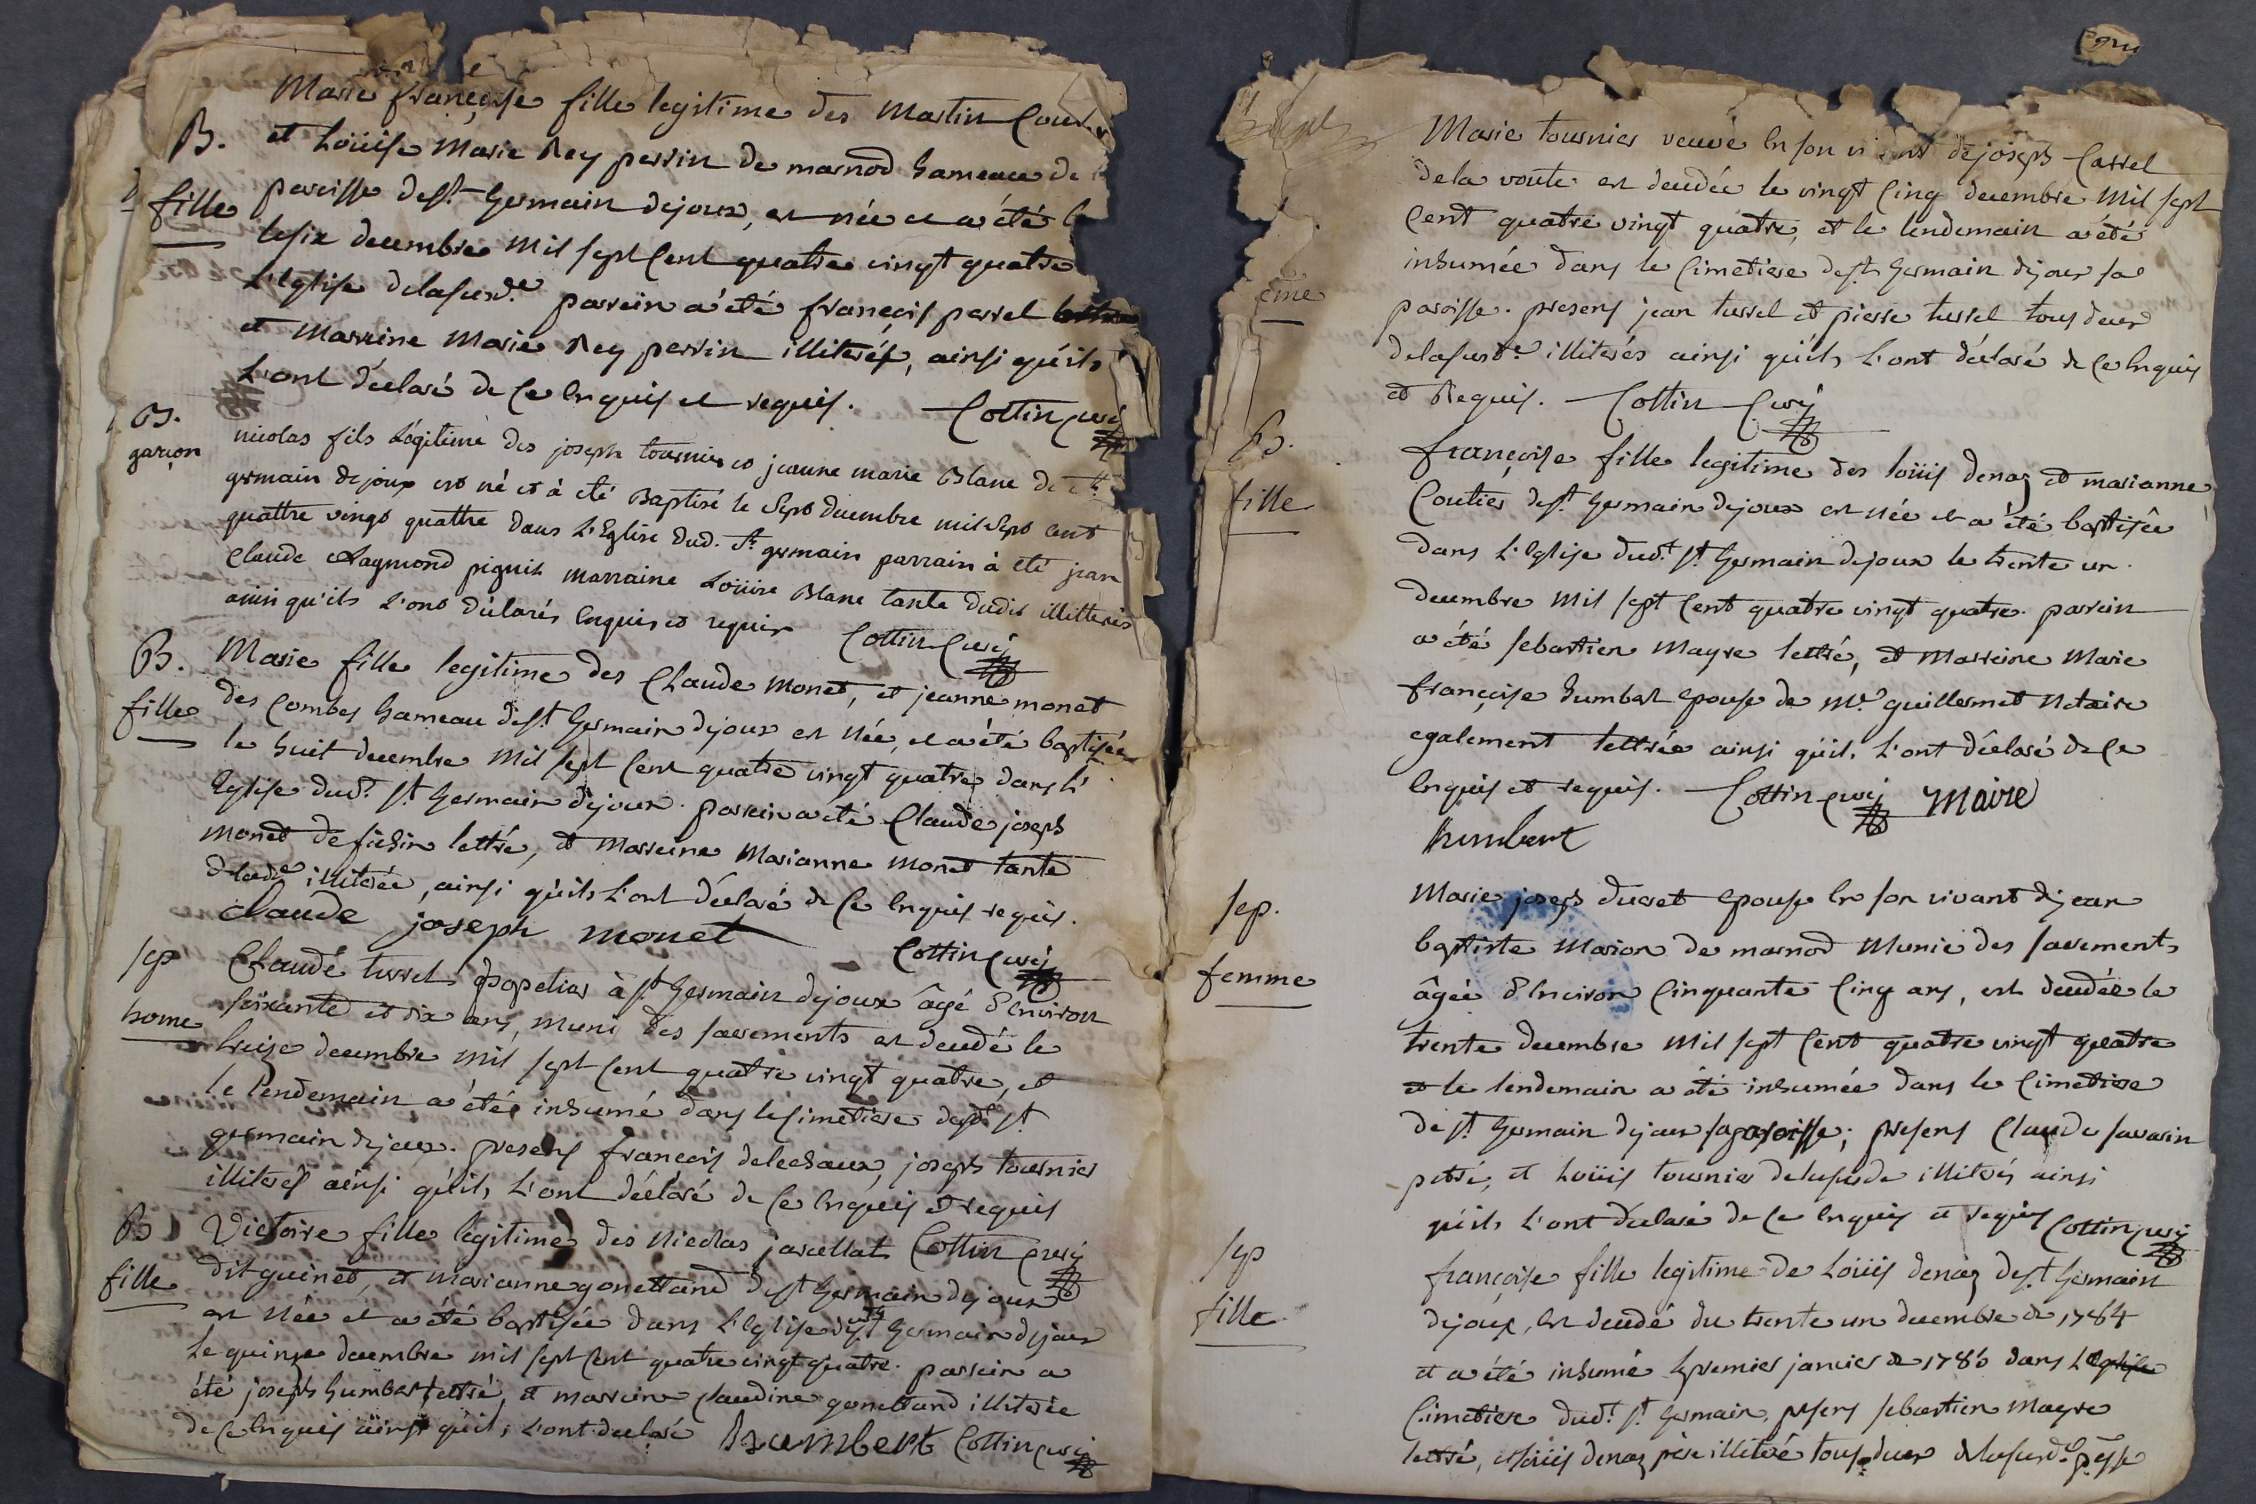 Marie françoise fille legitime des Martin
B. et Loüise Marie Rey perrin de marnod hameau de
fille paroisse de st. Germain dejoux, est née et a été
le six decembre Mil sept cent quatre vingt quatre
L'Eglise de la susd.e parrein a été françois perrel
et Marreine Marie Rey perrin illiterés, ainsi qu'ils
L'ont déclaré de ce Enquis et requis. Cottin Curé
B. garçon
nicolas fils Légitime des joseph tournier et jeanne marie Blanc de St.
germain de joux est né et à été Baptisé le Sept decembre mil Sept cent
quattre vingt quattre dans L'Eglise dud. St. germain parrain à été jean
Claude Raymond marraine Loüise Blanc tante dudit illitterés
ainsi qu'ils L'ont déclarés Enquis et requis Cottin Curé
B. Marie fille legitime des Claude Monet, et jeanne monet
fille des Combes hameau de st. Germain dejoux est née, et a été baptisée
le huit decembre Mil sept cent quatre vingt quatre dans L'
Eglise dud.t st. Germain dejoux. parrein a été Claude joseph
monet de lettré, et Marreine Marianne monet tante
illiterée, ainsi qu'ils L'ont déclaré de ce Enquis requis.
Claude joseph monet
Cottin Curé
sep Claude turrel à st. Germain dejoux âgé d'Environ
home soixante et dix ans, muni des sacrements est decedé le
treize decembre mil sept cent quatre vingt quatre, et
le lendemain a été inhumé dans le cimetiere dud.t st.
germain dejoux. presens françois delechaux, joseph tournier
illiterés ainsi qu'ils L'ont déclaré de ce Enquis et requis
B Victoire fille légitime des Nicolas Cottin Curé
fille dit guinet, et marianne gonettand de st. Germain dejoux
est née et a été baptisée dans L'Eglise dud.t st. Germain dejoux
Le quinze decembre mil sept cent quatre vingt quatre. parrein a
été joseph humbert lettré, et marreine Claudine gonettand illiterée
de ce Enquis ainsi qu'ils L'ont declaré humbert Cottin Curé
Marie tournier veuve En son vivant de joseph Carrel
de la voute est decedée le vingt Cinq decembre Mil sept
Cent quatre vingt quatre, et le lendemain a été
inhumée dans le Cimetiere de st. Germain dejoux sa
paroisse. presens jean turrel et pierre turrel tous deux
de la susd.e illiterés ainsi qu'ils L'ont déclaré de ce Enquis
et Requis. Cottin Curé
B. françoise fille legitime des loüis denaz et marianne
fille Coutier de st. Germain dejoux est née et a été baptisée
dans L'Eglise dud.t st. Germain dejoux le trente un
decembre Mil sept Cent quatre vingt quatre. parrein
a été sebastien Mayre lettré, et Marreine Marie
françoise humbert Epouse de Mr. guillermet Notaire
egalement lettrée ainsi qu'ils L'ont déclaré de ce
Enquis et requis. Cottin Curé Maire
humbert
sep. Marie joseph ducret Epouse En son vivant de jean
baptiste Marion de marnod Munie des sacrements
femme âgée d'Environ Cinquante Cinq ans, est decedée le
trente decembre Mil sept Cent quatre vingt quatre
et le lendemain a été inhumée dans le Cimetiere
de st. Germain dejoux sa paroisse; presens Claude savarin
et Loüis tournier de la susde illiterés ainsi
qu'ils L'ont déclaré de ce Enquis et requis Cottin Curé
sep françoise fille legitime de Loüis denaz de st. Germain
fille dejoux, est decedé du trente un decembre de 1784
et a été inhumé le premier janvier de 1785 dans L'Eglise
Cimetiere dud.t st. Germain, presens sebastien Mayre
lettré, et loüis denaz père illiteré tous deux de la susd.e p.sse